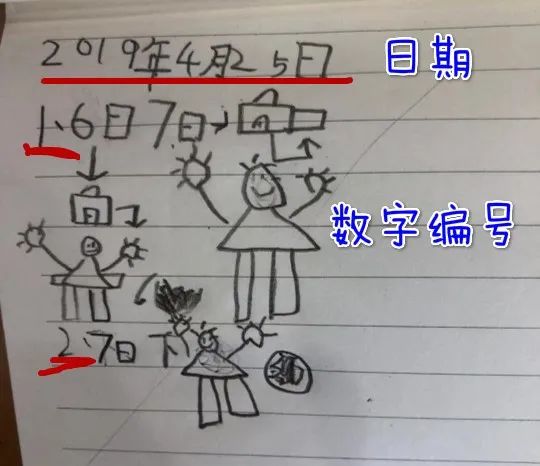 2019年4月25日
日期
1、6日7日
数字编号
2、7日下